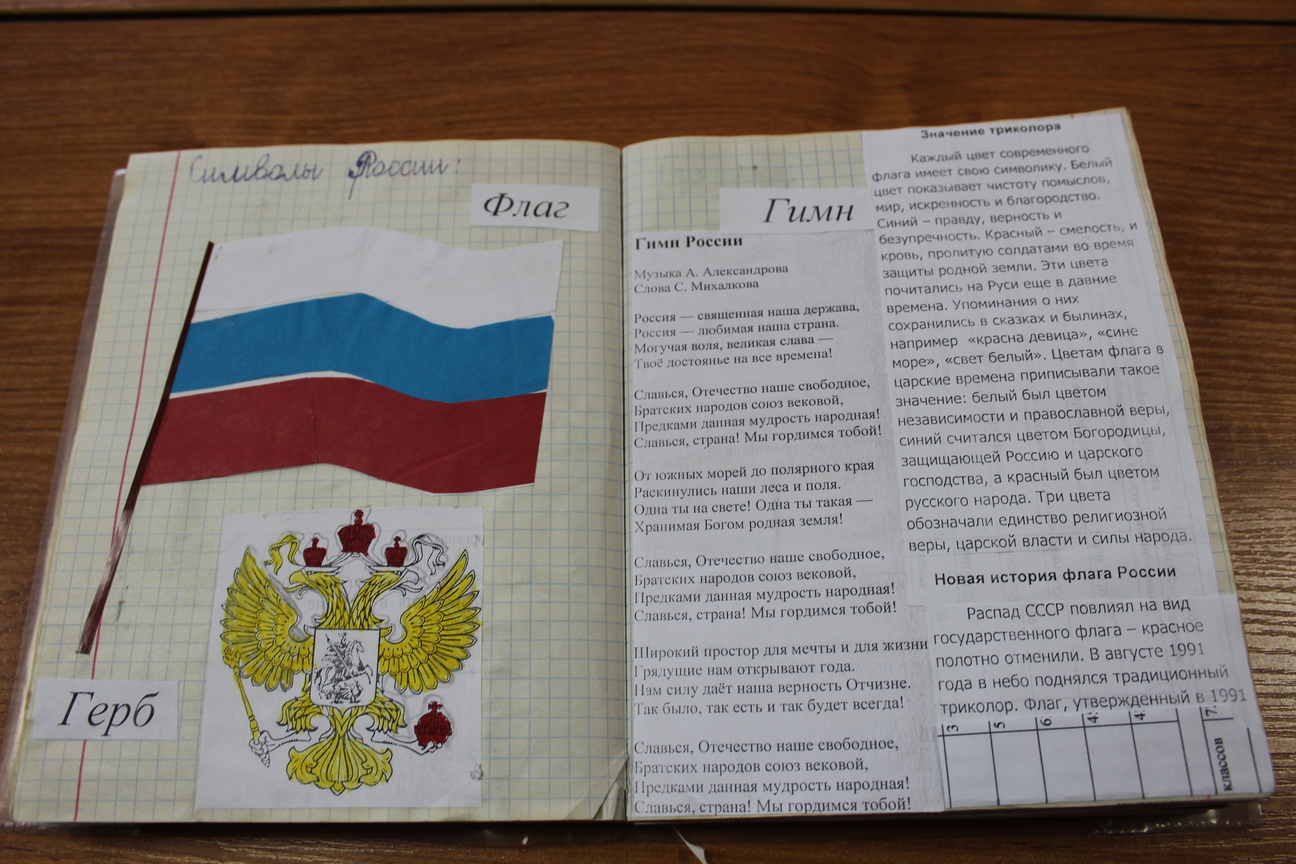 Символы России:
Флаг
Герб
Гимн
Гимн России
Музыка А. Александрова
Слова С. Михалкова
Россия — священная наша держава,
Россия — любимая наша страна.
Могучая воля, великая слава —
Твоё достоянье на все времена!
Славься, Отечество наше свободное,
Братских народов союз вековой,
Предками данная мудрость народная!
Славься, страна! Мы гордимся тобой!
От южных морей до полярного края
Раскинулись наши леса и поля.
Одна ты на свете! Одна ты такая —
Хранимая Богом родная земля!
Славься, Отечество наше свободное,
Братских народов союз вековой,
Предками данная мудрость народная!
Славься, страна! Мы гордимся тобой!
Широкий простор для мечты и для жизни
Грядущие нам открывают года.
Нам силу даёт наша верность Отчизне.
Так было, так есть и так будет всегда!
Славься, Отечество наше свободное,
Братских народов союз вековой,
Предками данная мудрость народная!
Славься, страна! Мы гордимся тобой!
Значение триколора
Каждый цвет современного
флага имеет свою символику. Белый
цвет показывает чистоту помыслов,
мир, искренность и благородство.
Синий – правду, верность и
безупречность. Красный – смелость, и
кровь, пролитую солдатами во время
защиты родной земли. Эти цвета
почитались на Руси еще в давние
времена. Упоминания о них
сохранились в сказках и былинах,
например «красна девица», «сине
море», «свет белый». Цветам флага в
царские времена приписывали такое
значение: белый был цветом
независимости и православной веры,
синий считался цветом Богородицы,
защищающей Россию и царского
господства, а красный был цветом
русского народа. Три цвета
обозначали единство религиозной
веры, царской власти и силы народа.
Новая история флага России
Распад СССР повлиял на вид
государственного флага – красное
полотно отменили. В августе 1991
года в небо поднялся традиционный
триколор. Флаг, утвержденный в 1991
3
5
6
4.
4.
7.
классов